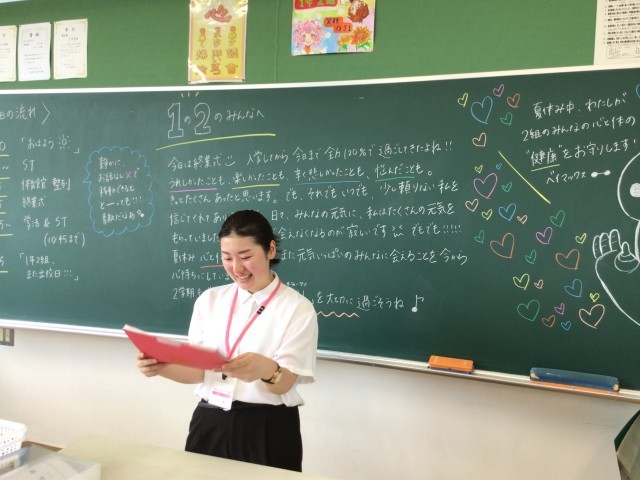 日の流れ〉
「おはよう
ST
体育館 整列
終業式
学活 & ST
(10:45まで)
「1年2組、
また出校日!!!
静かに、
お話はしXで
待機できると
とーっても!!
1の2のみんなへ
今日は終業式 入学してから今日まで全力120%で過ごしてきたよね!!
うれしかったことも、楽しかったことも、すく悲しかったことも、悩んだことも。
きっとたくさんあったと思います。でも、それでもいつでも、少し頼りない私を
信じてくれてあり 日々、みんなの元気に、私はたくさんの元気を
もらっていまし 会えなくなるのが寂しいです でもでも!!!!!
夏休み 心と また元気いっぱいのみんなに会えることを今から
心待ちにしていま
2学期も を大切に過ごそうね♪
夏休み中、わたしが
2組のみんなの心と体の
"健康"をお守りします!
ベイマックス